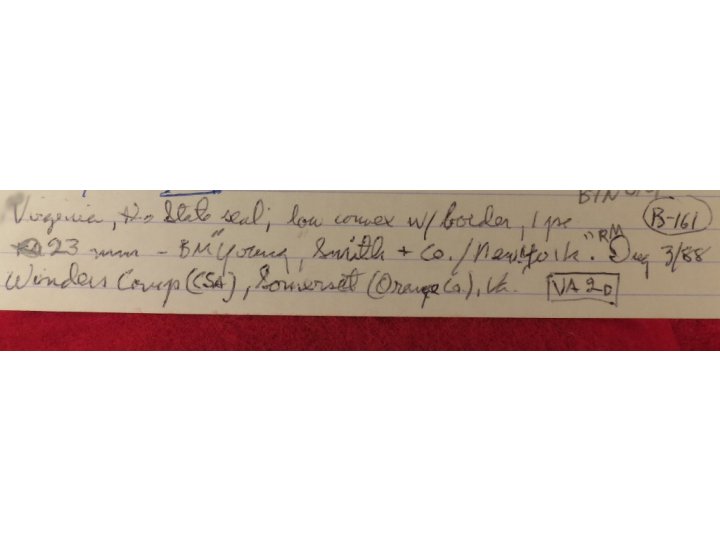 Virginia, State seal, low convex w/ border, 1 pc B-161
23 mm - BM "Young, Smith + Co. / New York." RM Dug 3/88
Winders Camp (CSA), Somerset (Orange Co), Va. VA 20